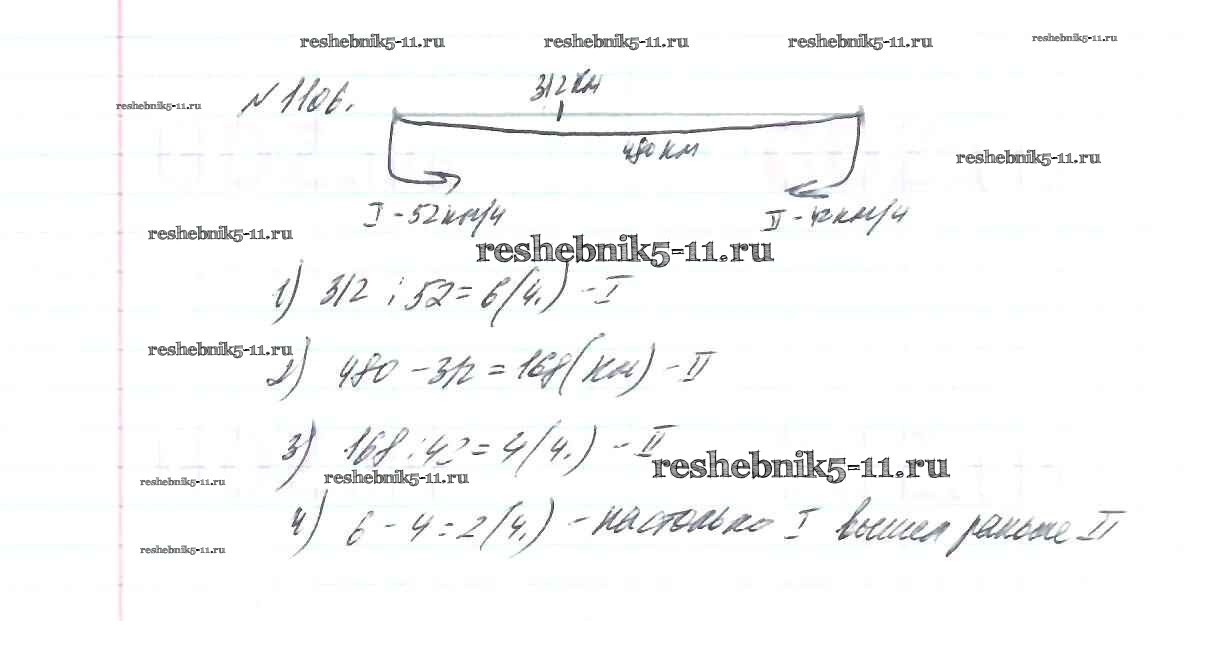 reshebnik5-11.ru reshebnik5-11.ru reshebnik5-11.ru reshebnik5-11.ru
312 км
reshebnik5-11.ru № 1106.
480 км
reshebnik5-11.ru
I - 52 км/ч II - 42 км/ч
reshebnik5-11.ru reshebnik5-11.ru
1) 312 : 52 = 6 (ч.) - I
reshebnik5-11.ru
2) 480 - 312 = 168 (км) - II
3) 168 : 42 = 4 (ч.) - II
reshebnik5-11.ru
reshebnik5-11.ru reshebnik5-11.ru
4) 6 - 4 = 2 (ч.) - настолько I вышел раньше II
reshebnik5-11.ru